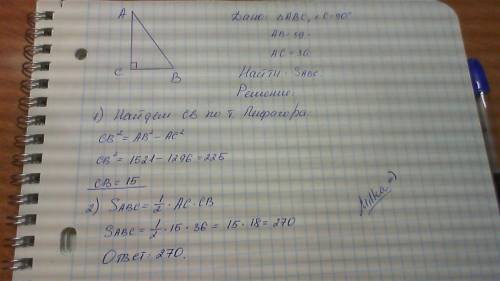 A
C
B
Дано: △ABC, ∠C=90°
AB=39.
AC=36.
Найти: SABC.
Решение.
1) Найдем CB по т. Пифагора.
CB² = AB² − AC²
CB² = 1521 − 1296 = 225
CB = 15
2) SABC = 1/2 · AC · CB
SABC = 1/2 · 15 · 36 = 15 · 18 = 270
Ответ: 270.